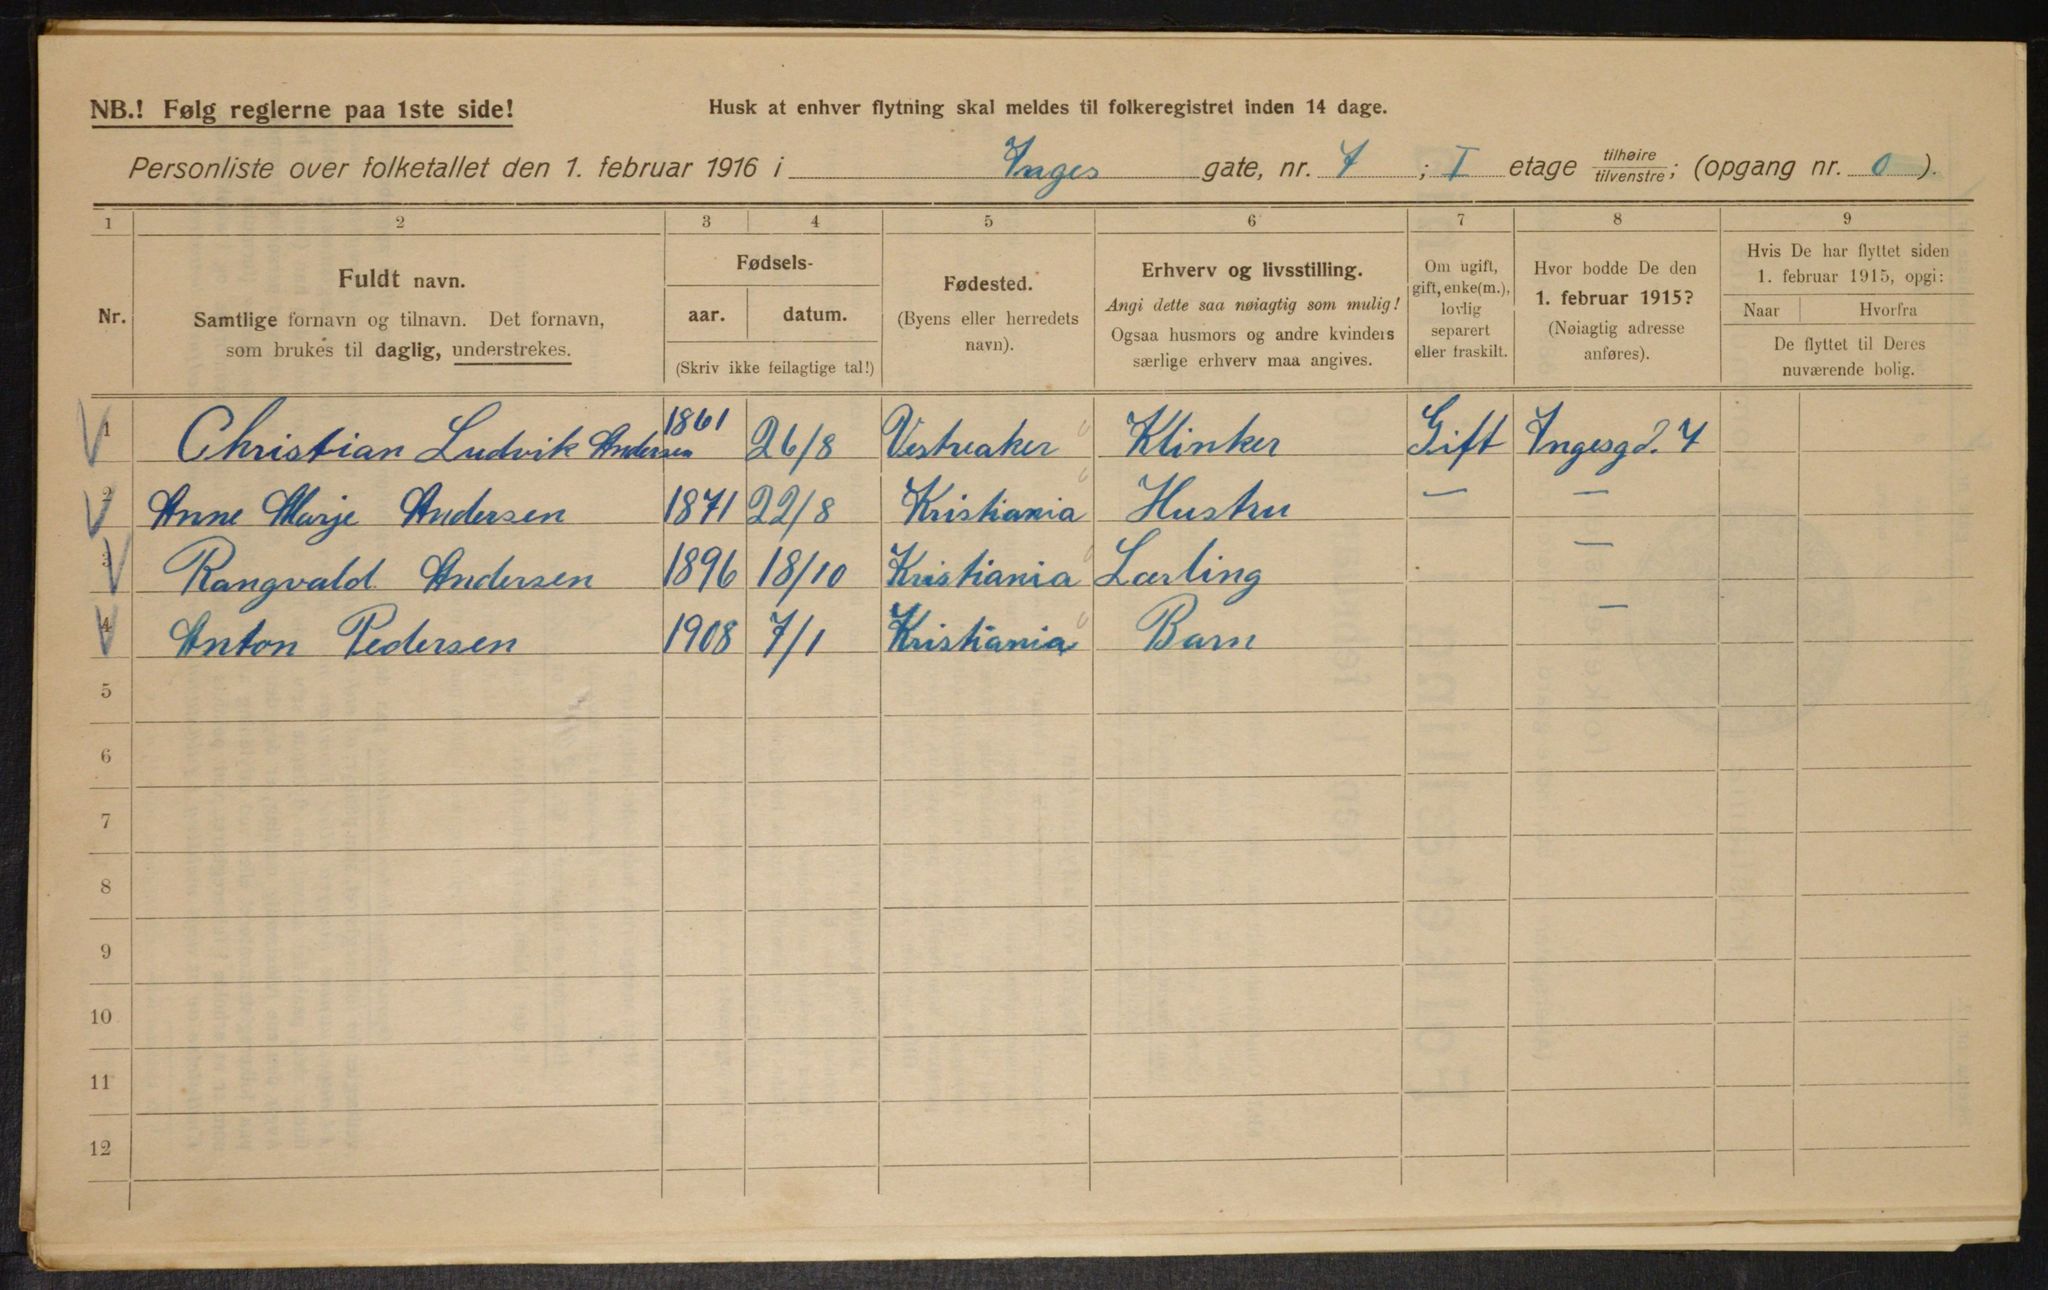 NB.! Følg reglerne paa 1ste side!
Husk at enhver flytning skal meldes til folkeregistret inden 14 dage.
Personliste over folketallet den 1. februar 1916 i Inges gate, nr. 7 ; I etage tilhøire / tilvenstre ; (opgang nr. 0 ).
1 2 3 4 5 6 7 8 9
Nr.
Fuldt navn.
Samtlige fornavn og tilnavn. Det fornavn,
som brukes til daglig, understrekes.
Fødsels-
aar. datum.
(Skriv ikke feilagtige tal!)
Fødested.
(Byens eller herredets
navn).
Erhverv og livsstilling.
Angi dette saa nøiagtig som mulig!
Ogsaa husmors og andre kvinders
særlige erhverv maa angives.
Om ugift,
gift, enke(m.),
lovlig
separert
eller fraskilt.
Hvor bodde De den
1. februar 1915?
(Nøiagtig adresse
anføres).
Hvis De har flyttet siden
1. februar 1915, opgi:
Naar Hvorfra
De flyttet til Deres
nuværende bolig.
1 Christian Ludvik Andersen 1861 26/8 Vestreaker Klinker Gift Ingesgd. 7
2 Anne Marje Andersen 1871 22/8 Kristiania Hustru — —
3 Rangvald Andersen 1896 18/10 Kristiania Lærling —
4 Anton Pedersen 1908 7/1 Kristiania Barn —
5
6
7
8
9
10
11
12